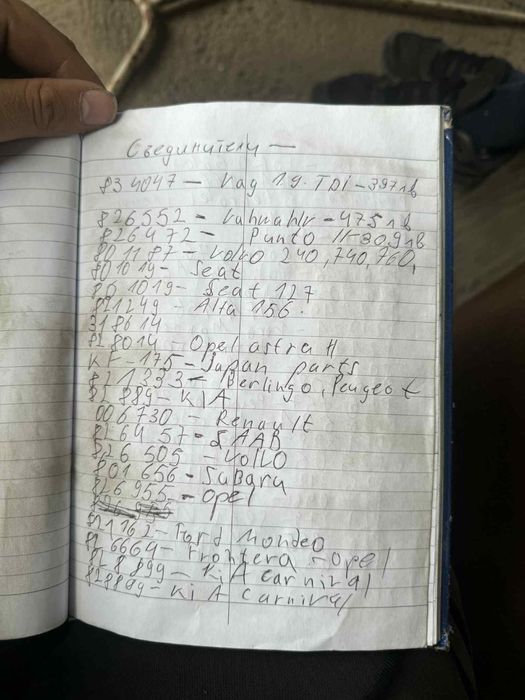 Съединители —
834047 — Кад 1.9. TDI — 397лв
826552 - - 475лв
826472 — Punto II - 309лв
801187 — Volvo 240, 740, 760,
801019 — Seat
861019 — Seat 127
821249 — Alfa 156.
318614
828014 — Opel astra H
KF-175 — Japan parts
821333 — Berlingo, Peugeot
82889 — KIA
006730 — Renault
826457 - SAAB
826505 — Volvo
801656 — Subaru
826955 — Opel
821162 — Ford Mondeo
826664 — Frontera - opel
828899 — KiA carnival
828889 — KiA Carnival